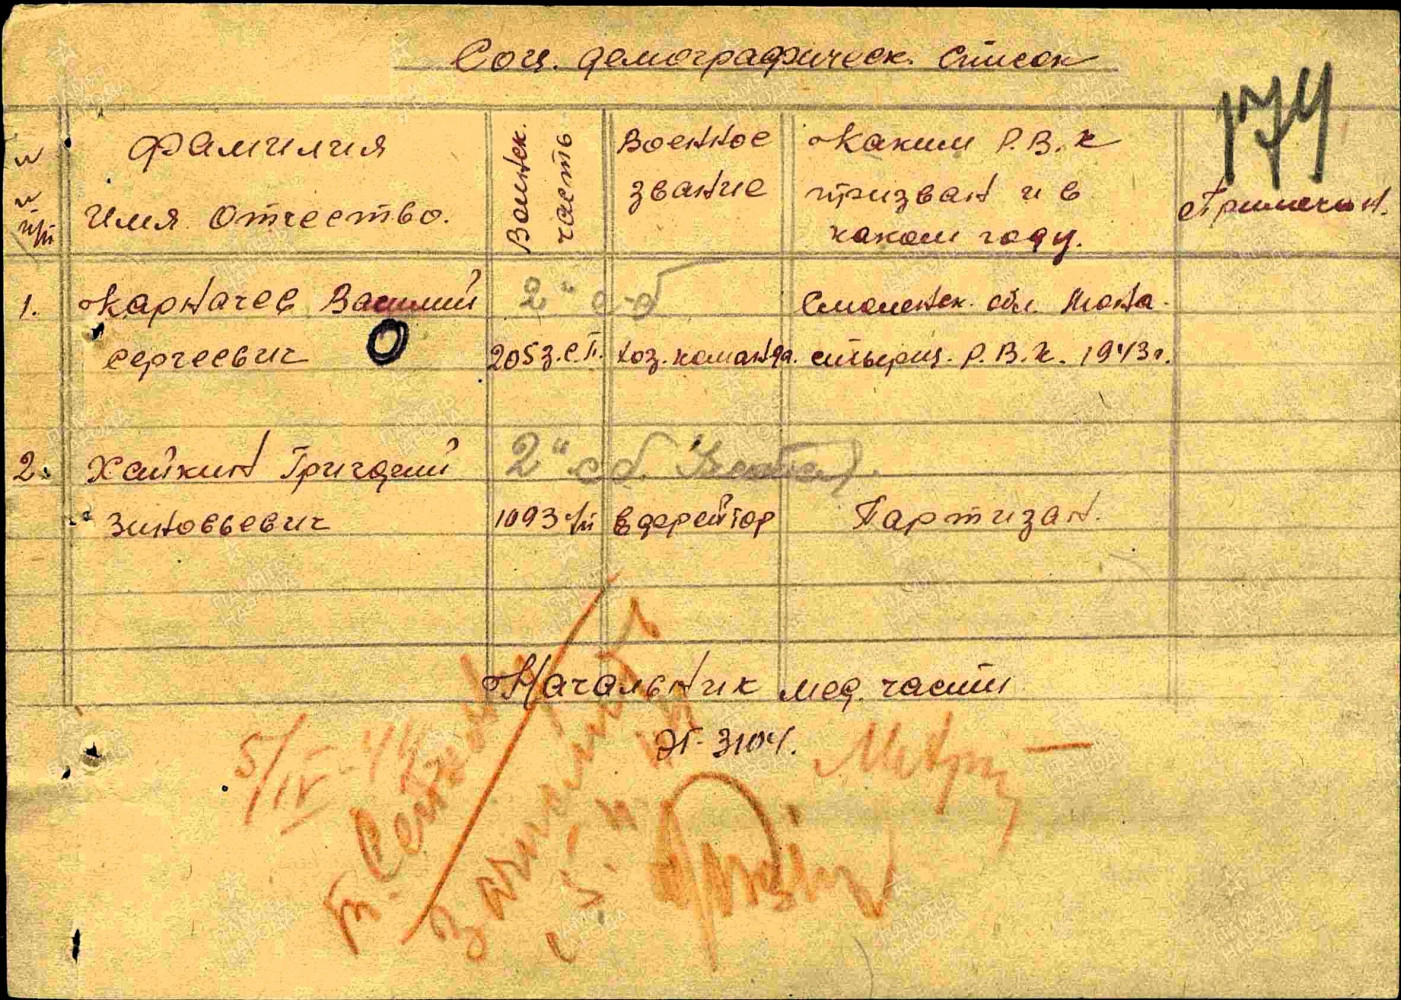 Соц. демографическ. список
174
№ № п/п
Фамилия Имя Отчество.
Воинск. часть
Военное звание
Каким Р.В.К призван и в каком году.
Примечан.
1. Карначев Василий 2" с-б Смоленск. обл. Мона-
Сергеевич 205 з.с.п. хоз. команда. стырщ. Р.В.К. 1943 г.
2. Хайкин Григорий 2" сб.
Зиновьевич 1093 с/п ефрейтор Партизан.
Начальник мед. части
ЭГ-3104.
5/IV-44